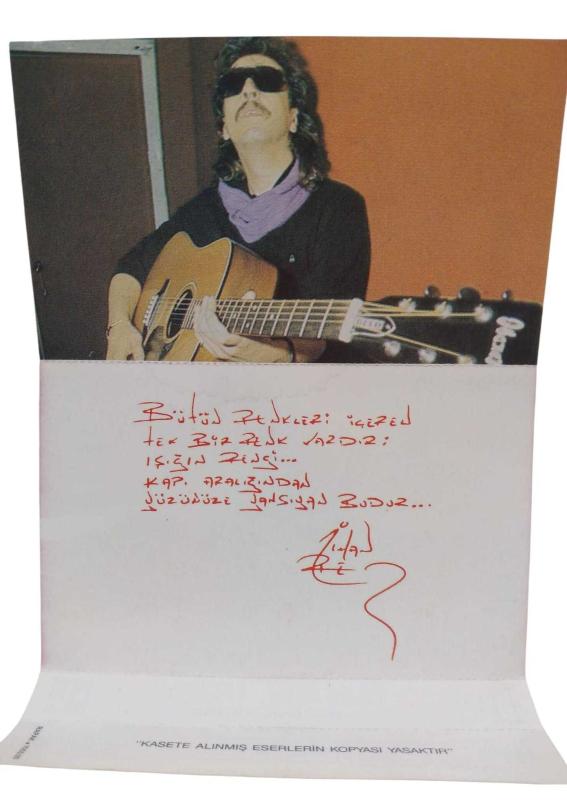 BÜTÜN RENKLERİ İÇEREN
TEK BİR RENK VARDIR:
IŞIĞIN RENGİ...
KAPI ARALIĞINDAN
YÜZÜNÜZE YANSIYAN BUDUR...
"KASETE ALINMIŞ ESERLERİN KOPYASI YASAKTIR"